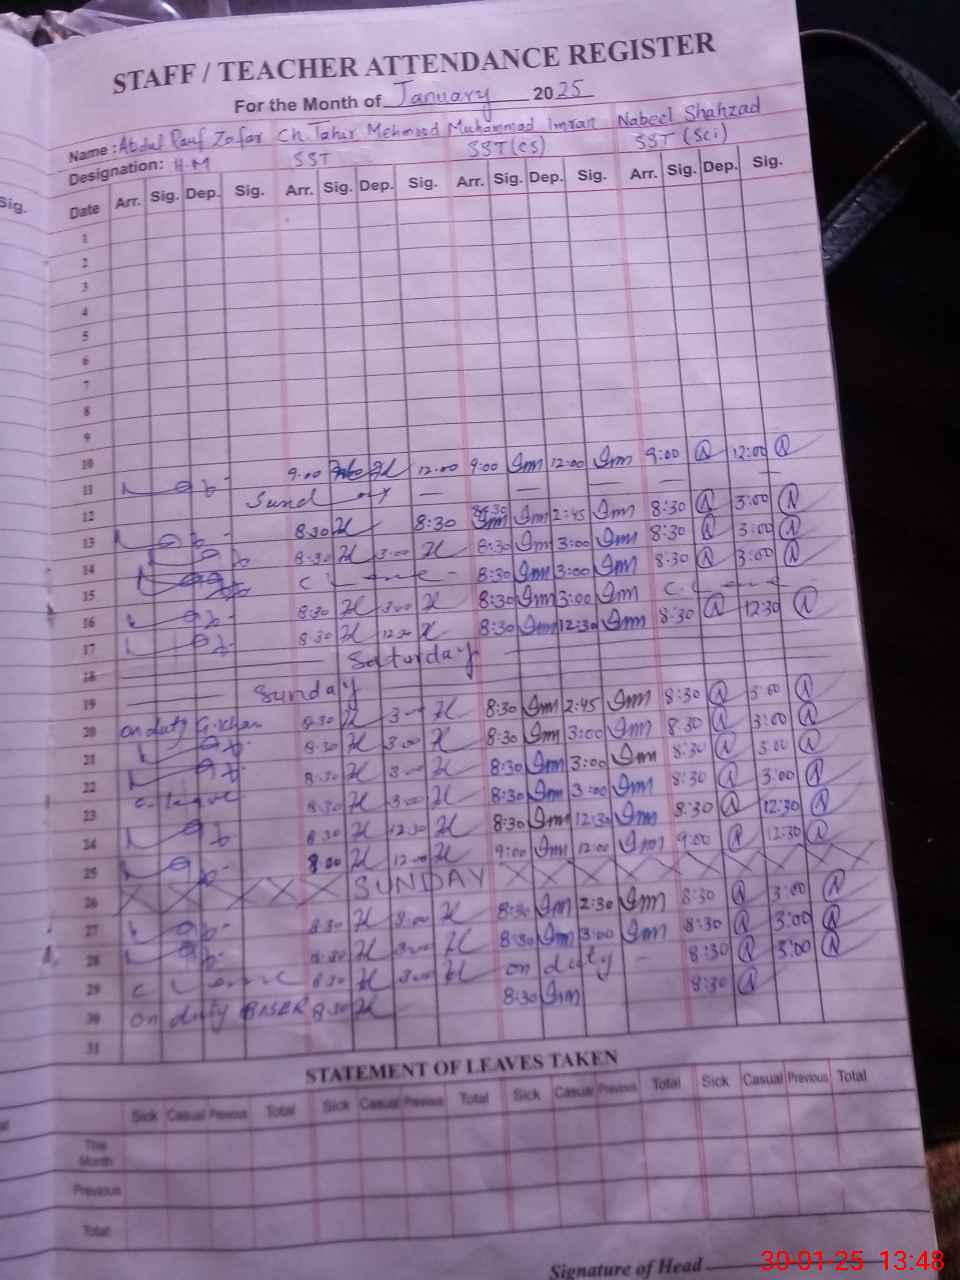 STAFF / TEACHER ATTENDANCE REGISTER
For the Month of January 2025
Name : Abdul Rauf Zafar Ch. Tahir Mehmood Muhammad Imran Nabeel Shahzad
Designation: H.M SST SST(CS) SST (Sci)
Sig.
Date Arr. Sig. Dep. Sig. Arr. Sig. Dep. Sig. Arr. Sig. Dep. Sig. Arr. Sig. Dep. Sig.
1
2
3
4
5
6
7
8
9
10
11 9:00 12:00 9:00 12:00 9:00 12:00
12 Sunday
13 8:30 8:30 8:30 2:45 8:30 3:00
14 8:30 3:00 8:30 3:00 8:30 3:00
15 C. Leave 8:30 3:00 8:30 3:00
16 8:30 3:00 8:30 3:00 C. Leave
17 8:30 12:30 8:30 12:30 8:30 12:30
18 Saturday
19 Sunday
20 on duty G.Khan 8:30 3:00 8:30 2:45 8:30 3:00
21 8:30 3:00 8:30 3:00 8:30 3:00
22 8:30 3:00 8:30 3:00 8:30 3:00
23 C. leave 8:30 3:00 8:30 3:00 8:30 3:00
24 8:30 12:30 8:30 12:30 8:30 12:30
25 8:00 12:00 9:00 12:00 9:00 12:30
26 SUNDAY
27 8:30 3:00 8:30 2:30 8:30 3:00
28 8:30 3:00 8:30 3:00 8:30 3:00
29 C Leave 8:30 3:00 on duty 8:30 3:00
30 on duty 8:30 8:30 8:30
31
STATEMENT OF LEAVES TAKEN
Sick Casual Previous Total Sick Casual Previous Total Sick Casual Previous Total Sick Casual Previous Total
This Month
Previous
Total
Signature of Head
30-01-25 13:48